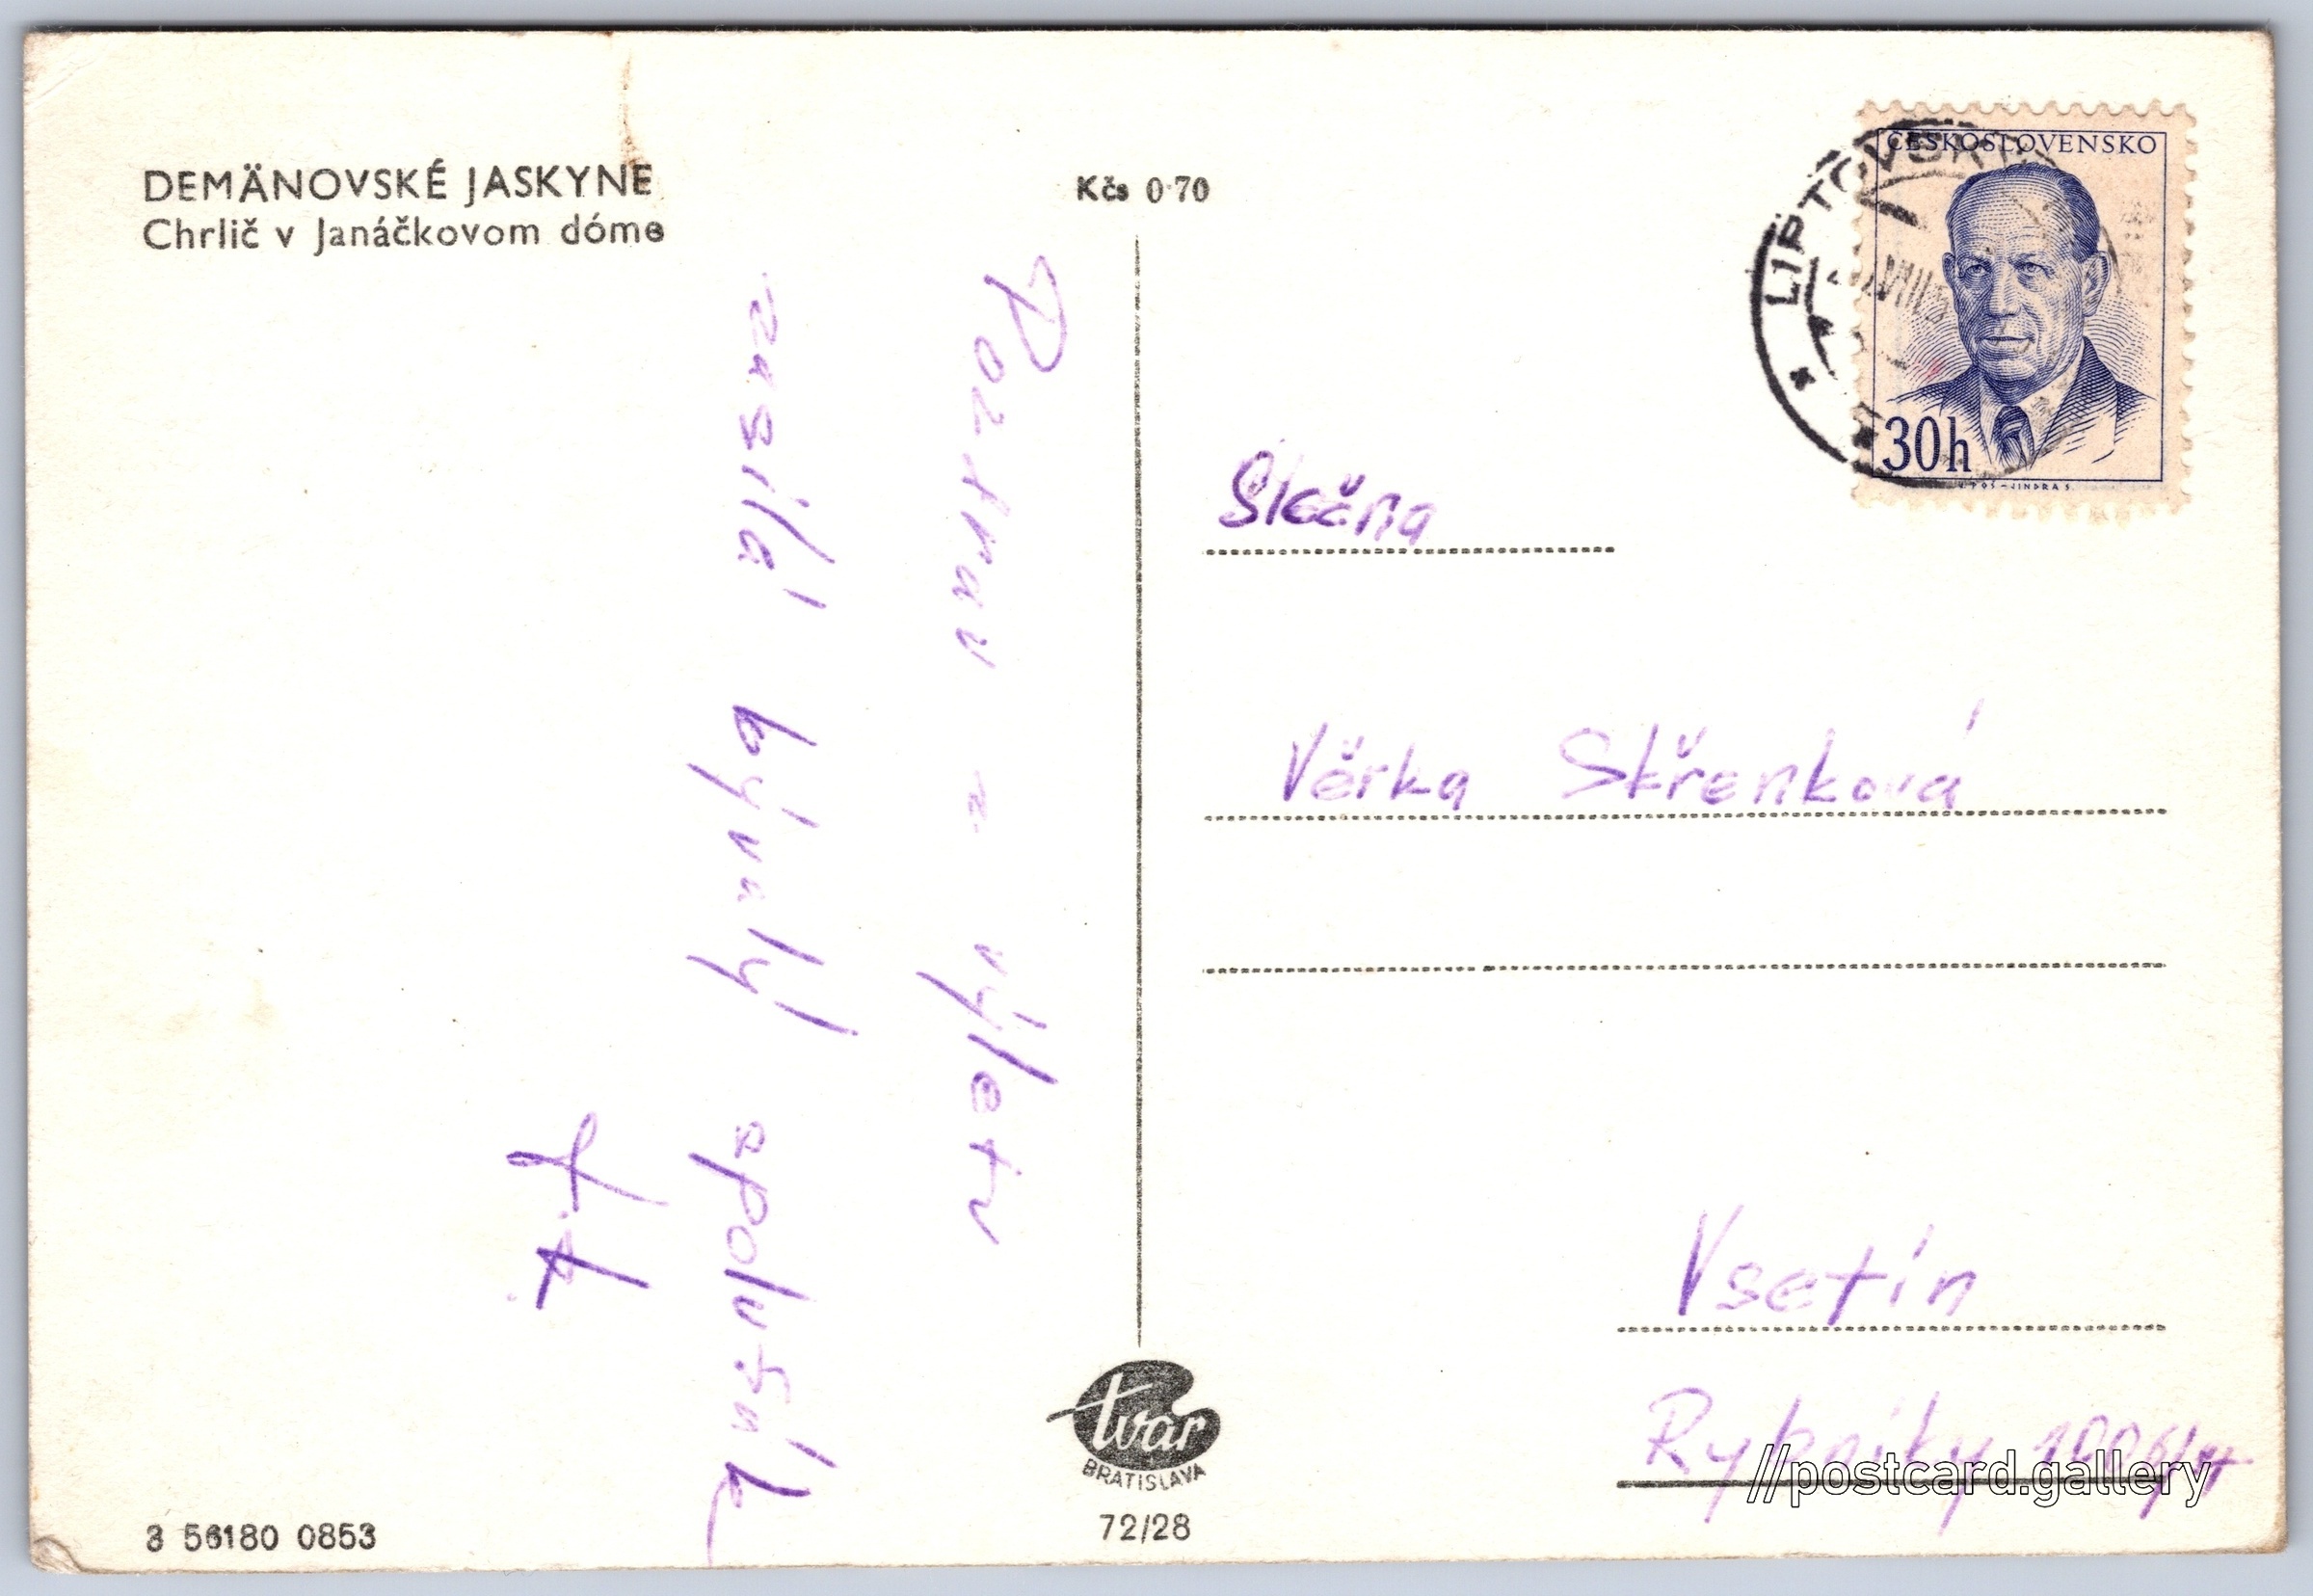 DEMÄNOVSKÉ JASKYNE
Chrlič v Janáčkovom dóme
Kčs 0·70
ČESKOSLOVENSKO
30h
LIPTOVSKÝ
Pozdrav z výletu
zasílá bývalý spolužák
Slečna
Věrka Skřenková
Vsetín
Rybníky
tvar
BRATISLAVA
72/28
3 56180 0853
//postcard.gallery